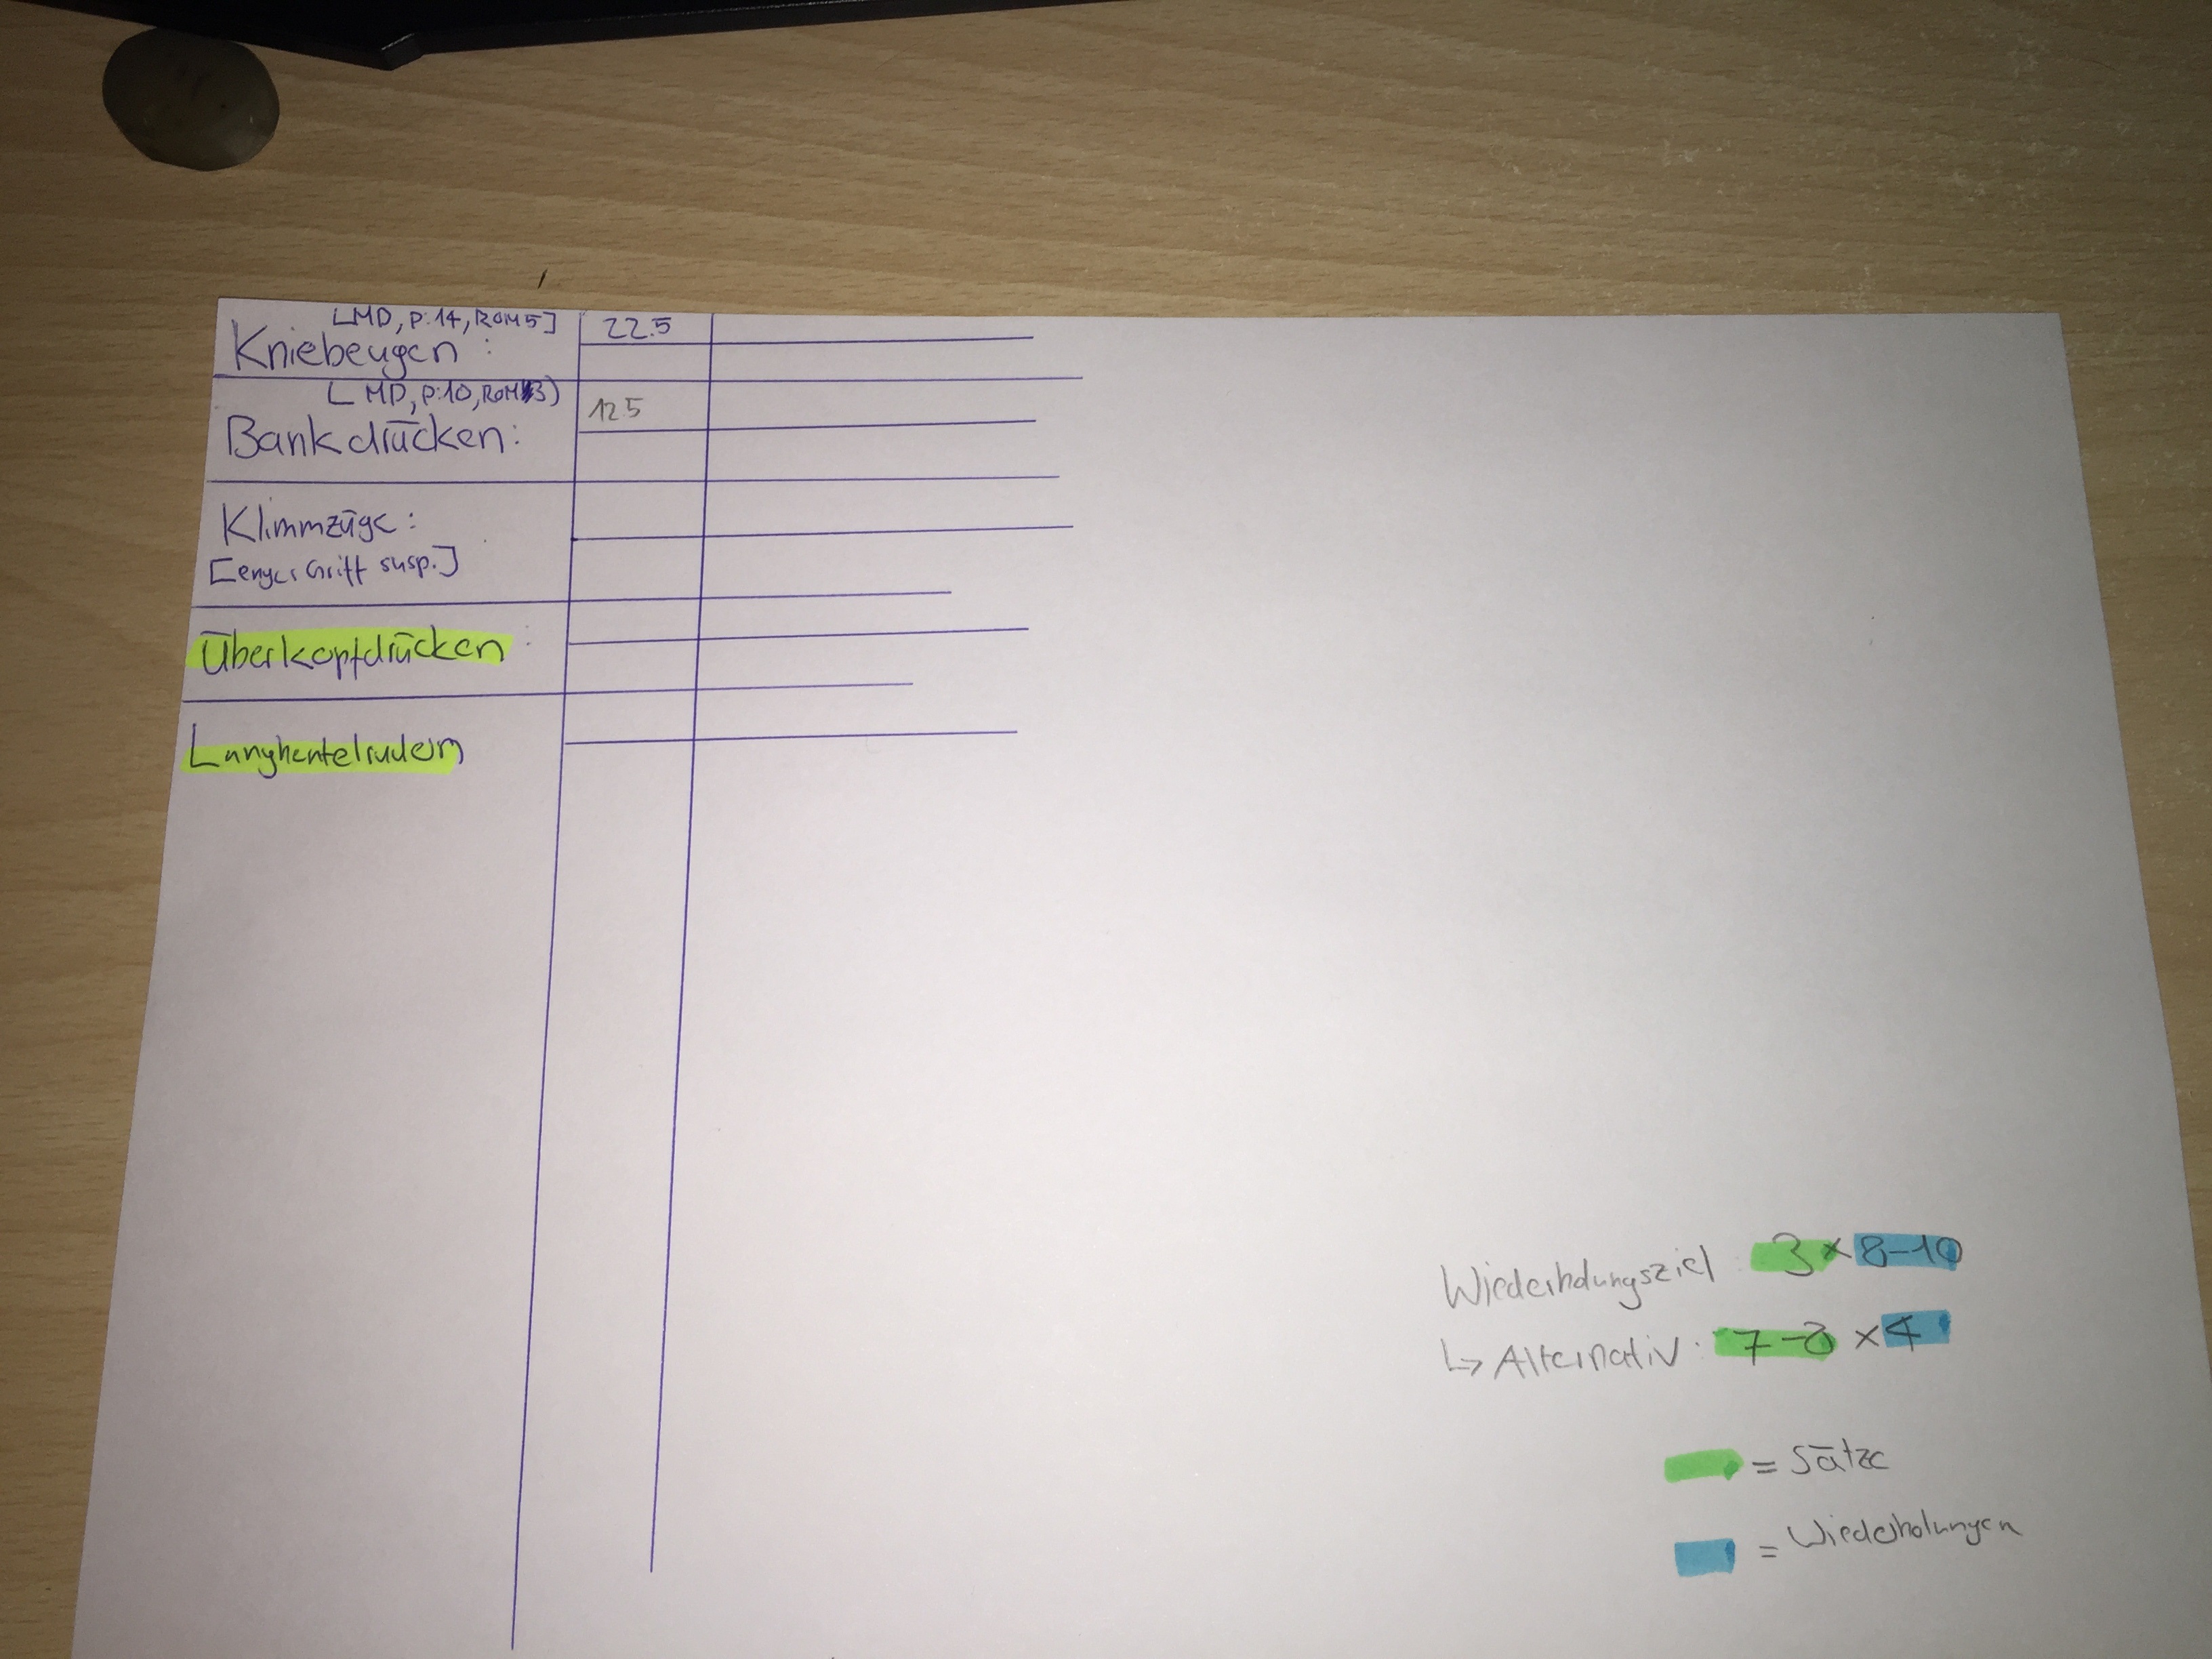 [MD, P:14, ROM5]
Kniebeugen :
22.5
[MD, P:10, ROM3)
Bankdrücken:
125
Klimmzüge:
[enger Griff susp.]
Überkopfdrücken :
Langhantelrudern
Wiederholungsziel : 3 x 8-10
↳ Alternativ: 7-8 x 4
= Sätze
= Wiederholungen